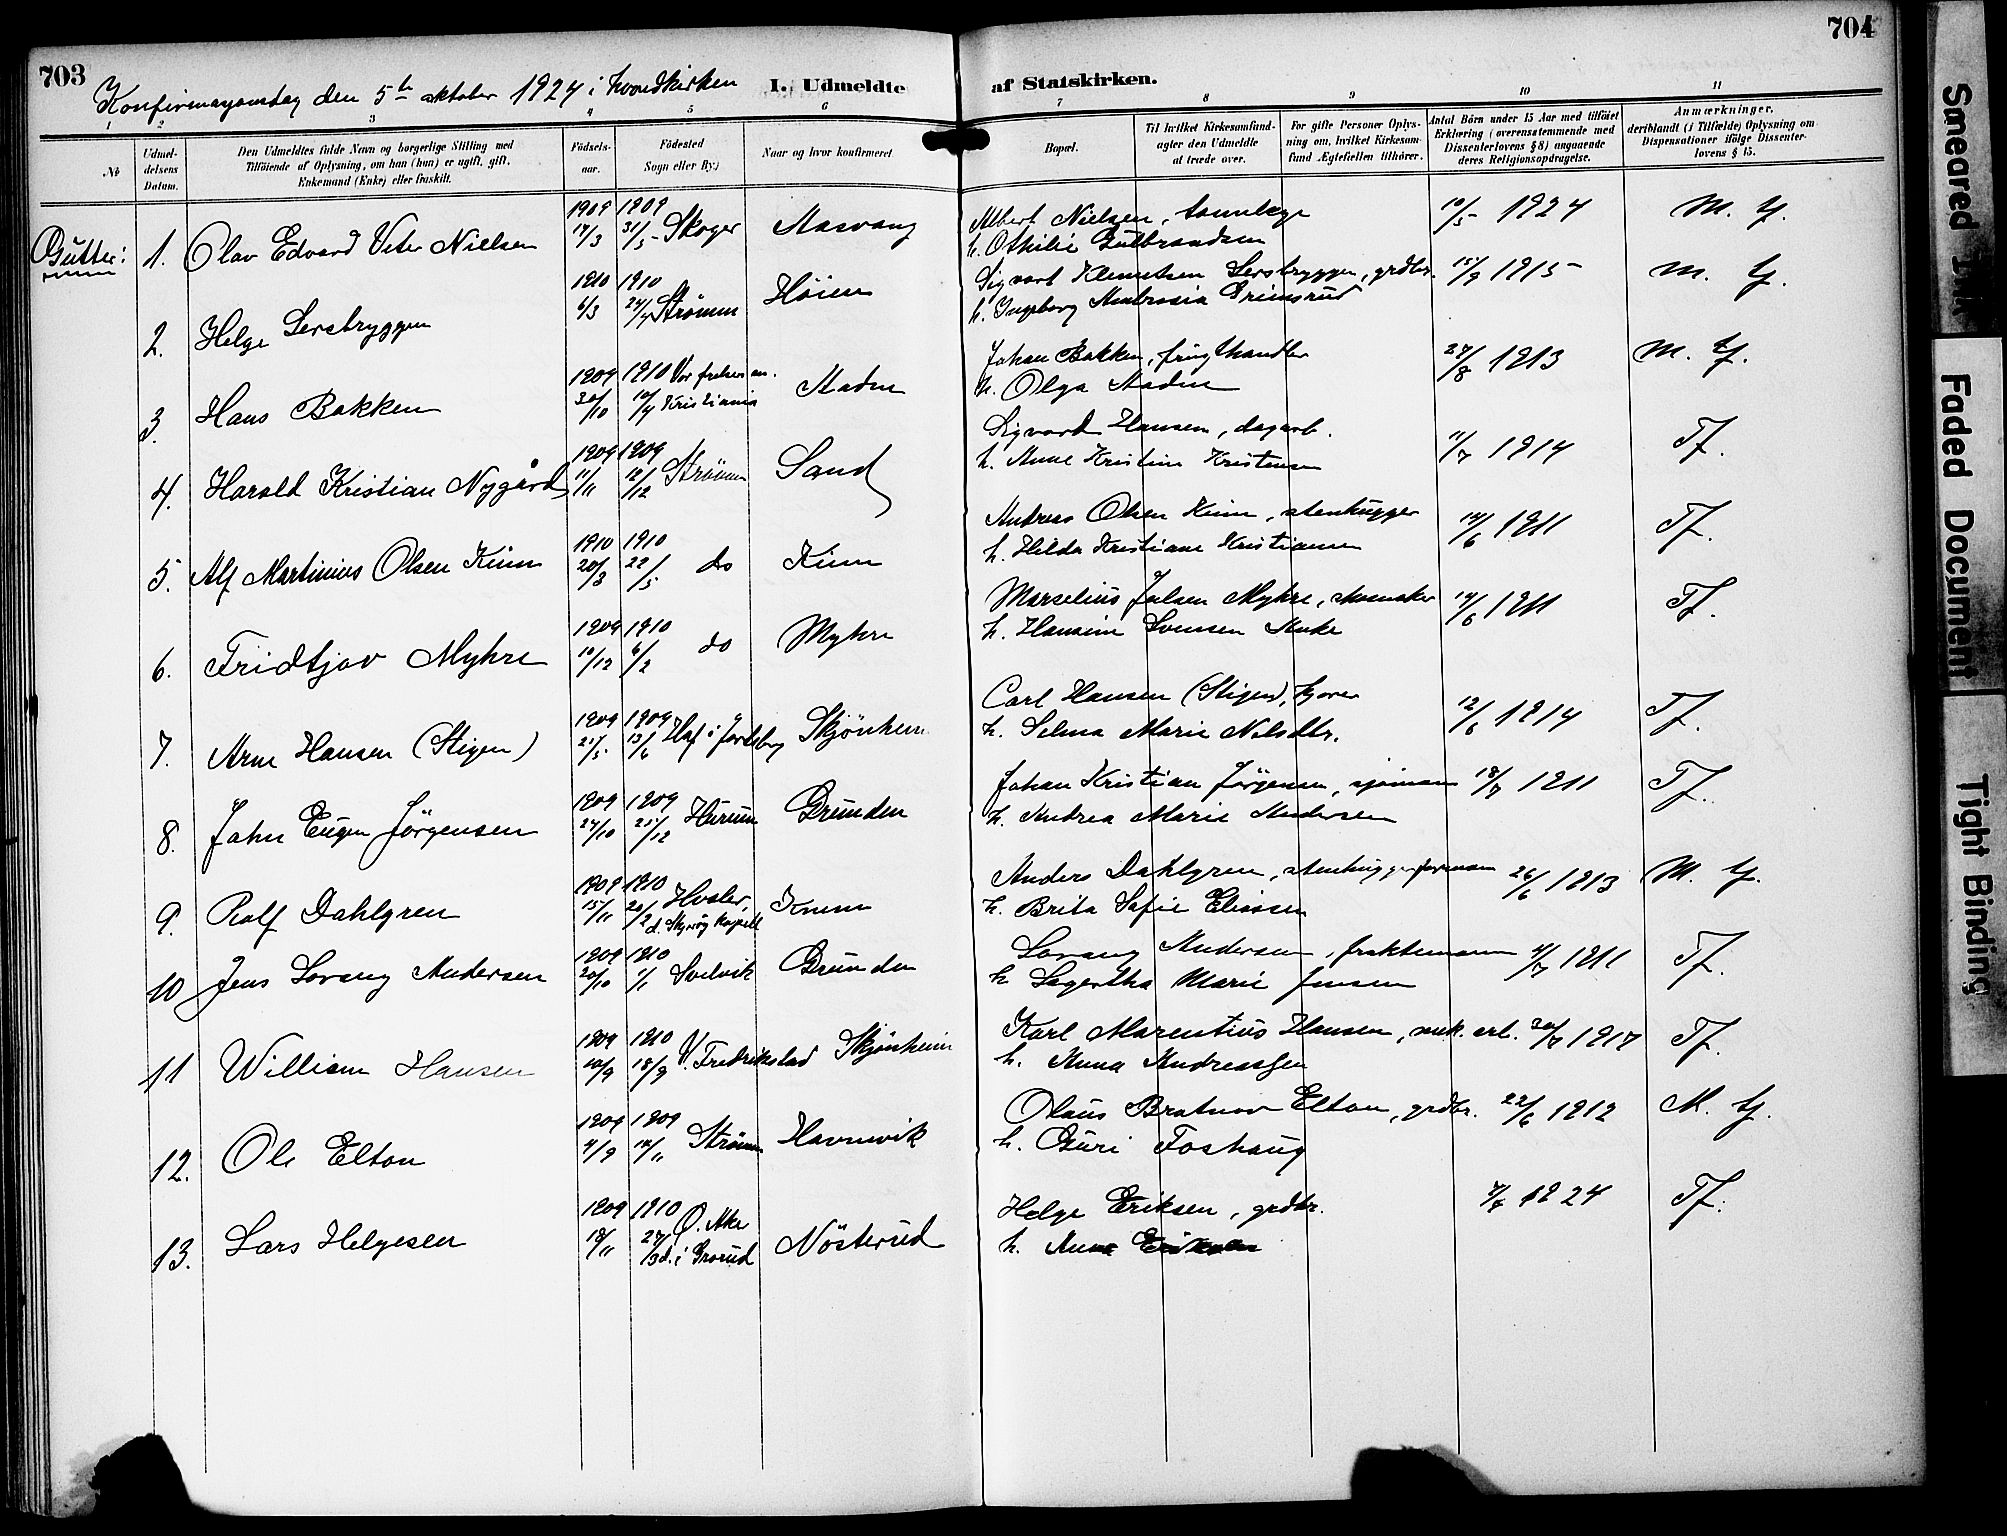 703
704
Konfirmasjonsdag den 5te oktober 1924 i hovedkirken
I. Udmeldte af Statskirken.
1 2 3 4 5 6 7 8 9 10 11
No
Udmel-
delsens
Datum.
Den Udmeldtes fulde Navn og borgerlige Stilling med
Tilföiende af Oplysning, om han (hun) er ugift, gift,
Enkemand (Enke) eller fraskilt.
Födsels-
aar.
Födested
Sogn eller By.)
Naar og hvor konfirmeret
Bopæl.
Til hvilket Kirkesamfund-
agter den Udmeldte
at træde over.
For gifte Personer Oplys-
ning om, hvilket Kirkesam-
fund Ægtefællen tilhörer.
Antal Börn under 15 Aar med tilföiet
Erklæring (overensstemmende med
Dissenterlovens § 8) angaaende
deres Religionsopdragelse.
Anmærkninger,
deriblandt (i Tilfælde) Oplysning om
Dispensationer ifölge Dissenter-
lovens § 15.
Gutter:
1. Olav Edvard Veter Nielsen 1909 17/3 1909 31/5 Skoger Aasvang
Albert Nielsen, tannlæge 10/5 1924 M. G.
h. Othilie Gulbrandsen
2. Helge Sersbryggen 1910 6/3 1910 24/4 Strömm Höien
Sigvart Klemetsen Sersbryggen, grdbr. 15/9 1915 M. G.
h. Ingeborg Ambrosia Grimsrud
3. Hans Bakken 1909 30/10 1910 10/4 Vor frelsers m. Kristiania Aaden
Johan Bakken, frugthandler 28/8 1913 M. G.
h. Olga Aaden
4. Harald Kristian Nygård 1909 11/11 1909 12/12 Strömm Sand
Sigvard Hansen, dagarb. 11/7 1914 Tf.
h. Anne Kristine Kristensen
5. Alf Martinius Olsen Kinn 1910 20/3 1910 22/5 do Kinn
Andreas Olsen Kinn, stenhugger 14/6 1911 Tf.
h. Hilda Kristiane Kristiansen
6. Fridtjov Myhre 1909 10/12 1910 6/2 do Myhre
Marselius Julsen Myhre, skomaker 14/6 1911 Tf.
h. Hansine Svensen Auke
7. Arne Hansen (Stigen) 1909 21/5 1909 13/6 Hof i Jarlsberg Skjönheim
Carl Hansen (Stigen), kjører 12/6 1914 Tf.
h. Selma Marie Nilsdtr.
8. John Eugen Jörgensen 1909 24/10 1909 25/12 Hurum Grunden
Johan Kristian Jörgensen, sjömann 18/7 1911 Tf.
h. Andrea Marie Andersen
9. Rolf Dahlgren 1909 15/11 1910 20/2 Hvaler, d. Skjærøy kapell Knem
Anders Dahlgren, stenhuggerformann 26/6 1913 M. G.
h. Brita Sofie Eliassen
10 Jens Lorang Andersen 1909 20/10 1910 1/1 Svelvik Grunden
Lorang Andersen, fraktemann 4/7 1911 Tf.
h Lagertha Marie Jensen
11 William Hansen 1909 10/9 1910 18/9 V. Fredrikstad Skjönheim
Karl Marentius Hansen, mek. arb. 20/7 1917 Tf.
h. Anna Andreassen
12. Ole Elton 1909 4/9 1909 14/11 Strömm Havnevik
Olaus Bratnov Elton, grdbr. 22/6 1912 M. G.
h. Guri Foshaug
13. Lars Helgesen 1909 18/11 1910 27/3 Ö. Aker d. i Grorud Nösterud
Helge Eriksen, grdbr. 7/4 1924 Tf.
h. Anna
Smeared Ink
Faded Document
Tight Binding